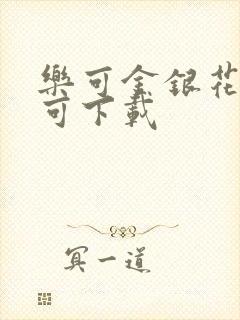 樂可金銀花
可下載
冥一道